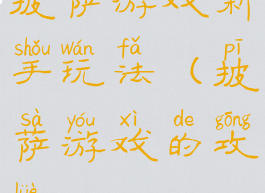 披萨游戏新
shǒu wán fǎ pī
手玩法（披
sà yóu xì de gōng
萨游戏的攻
lüè